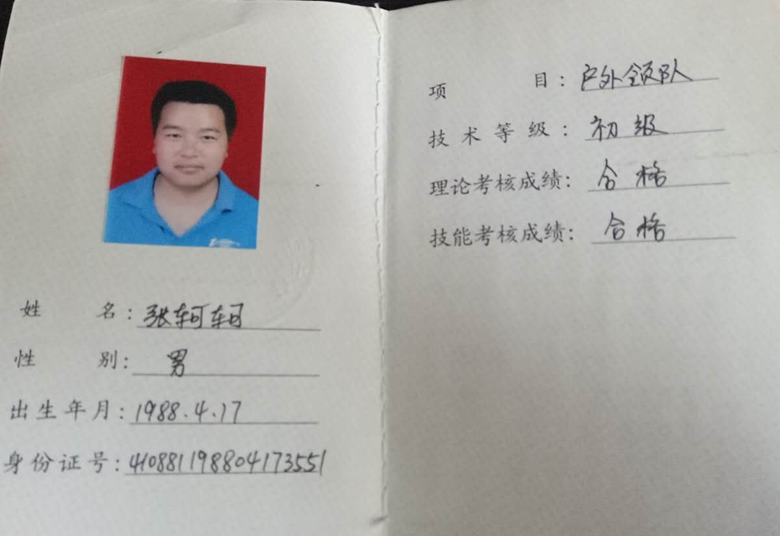 姓名：张轲轲
性别：男
出生年月：1988.4.17
身份证号：410881198804173551
项目：户外领队
技术等级：初级
理论考核成绩：合格
技能考核成绩：合格